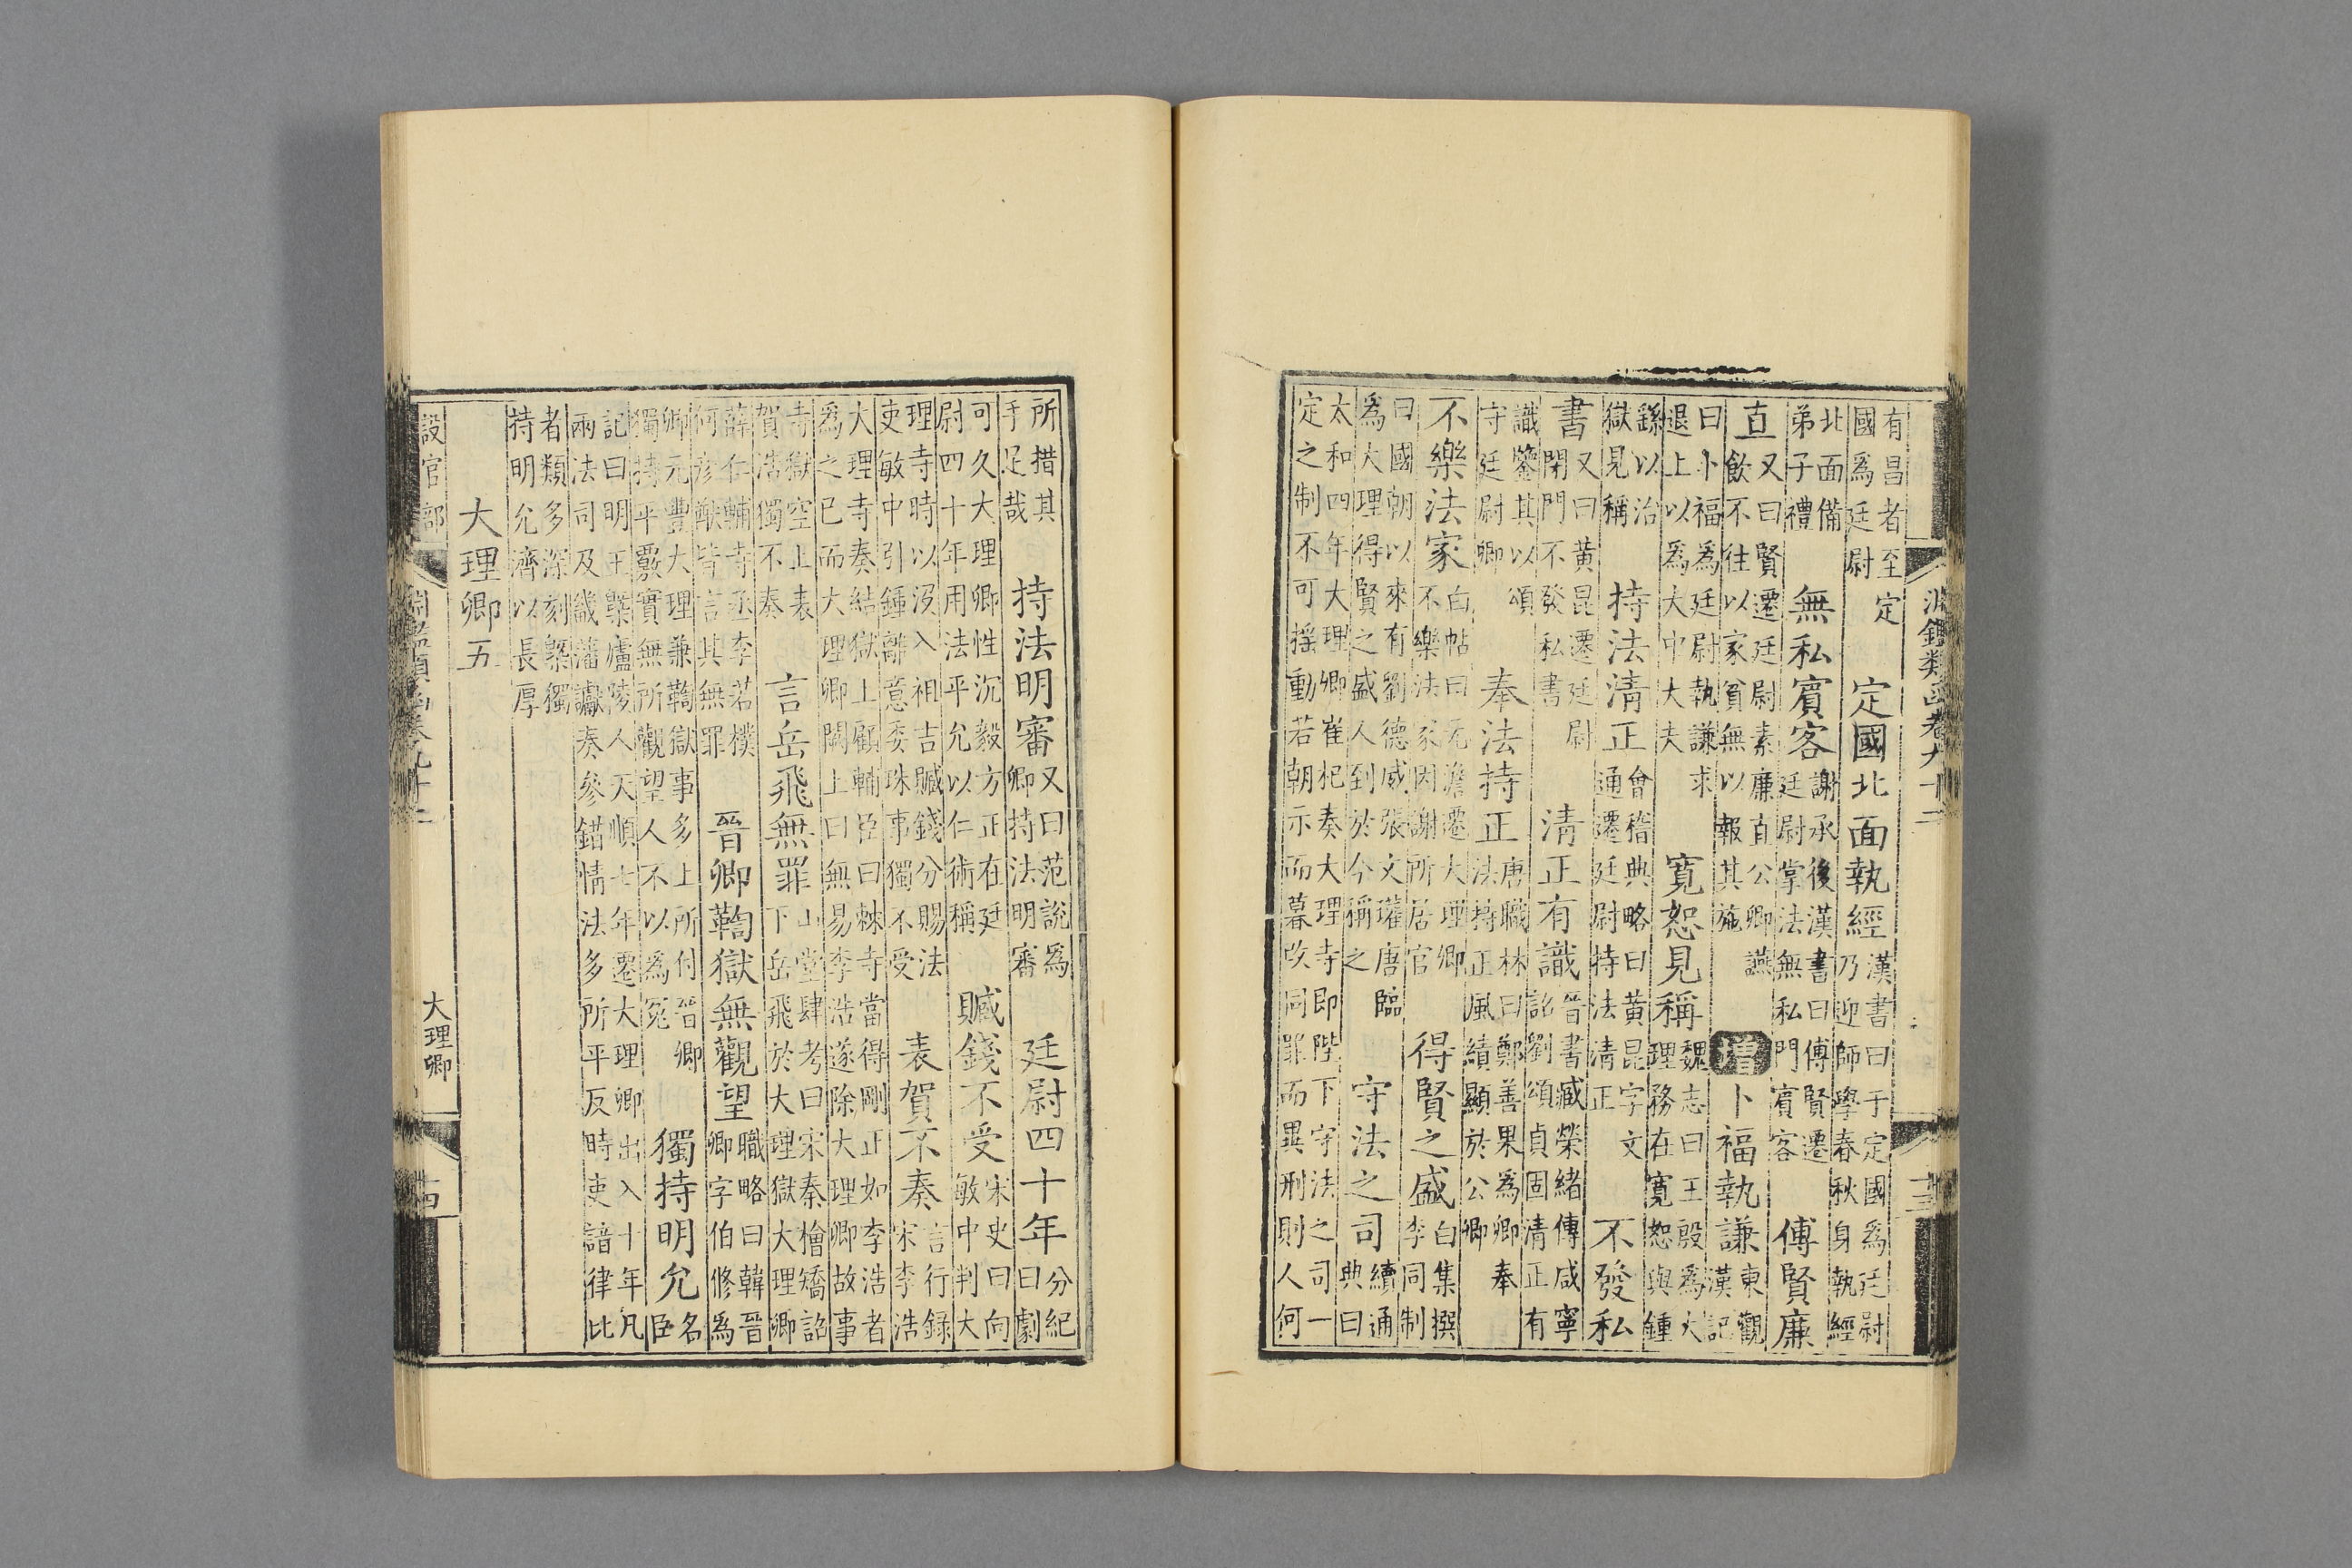 淵鑑類函卷九十二 十三
有昌者至 定
國爲廷尉
定國北面執經
漢書曰于定國爲廷尉
乃迎師學春秋身執經
北面備
弟子禮
無私賓客
謝承後漢書曰傅賢遷
廷尉掌法無私門賓客
傅賢廉
直
又曰賢遷廷尉素廉直公卿讌
飲不往以家貧無以報其施
增
卜福執謙
東觀
漢記
曰卜福爲廷尉執謙求
退上以爲大中大夫
寬恕見稱
魏志曰王殷爲大
理務在寬恕與鍾
繇以治
獄見稱
持法清正
會稽典略曰黃昆字文
通遷廷尉持法清正
不發私
書
又曰黃昆遷廷尉
閉門不發私書
清正有識
晉書臧榮緒傳咸寧
詔劉頌貞固清正有
識鑒其以頌
守廷尉卿
奉法持正
唐職林曰鄭善果爲卿奉
法持正風績顯於公卿
不樂法家
白帖曰元澹遷大理卿
不樂法家因謝所居官
得賢之盛
白集撰
李同制
曰國朝以來有劉德威張文瓘唐臨
爲大理得賢之盛人到於今稱之
守法之司
續通
典曰
太和四年大理卿崔杞奏大理寺即陛下守法之司一
定之制不可搖動若朝示而暮改同罪而異刑則人何
所措其
手足哉
持法明審
又曰范說爲
卿持法明審
廷尉四十年
分紀
曰劇
可久大理卿性沉毅方正在廷
尉四十年用法平允以仁術稱
贓錢不受
宋史曰向
敏中判大
理寺時以沒入祖吉贓錢分賜法
吏敏中引鍾離意委珠事獨不受
表賀不奏
言行録
宋李浩
大理寺奏結獄上顧輔臣曰棘寺當得剛正如李浩者
爲之已而大理卿闕上曰無易李浩遂除大理卿故事
寺獄空上表
賀浩獨不奏
言岳飛無罪
山堂肆考曰宋秦檜矯詔
下岳飛於大理獄大理卿
薛仁輔寺丞李若樸
何彥猷皆言其無罪
晉卿鞫獄無觀望
職略曰韓晉
卿字伯修爲
卿元豐大理兼鞫獄事多上所付晉卿
獨持平覈實無所觀望人不以爲冤
獨持明允
名
臣
記曰明王槩廬陵人天順七年遷大理卿出入十年凡
兩法司及畿藩讞奏參錯情法多所平反時吏諳律比
者類多深刻槩獨
持明允濟以長厚
大理卿五
設官部 淵鑑類函卷九十二 大理卿 十四